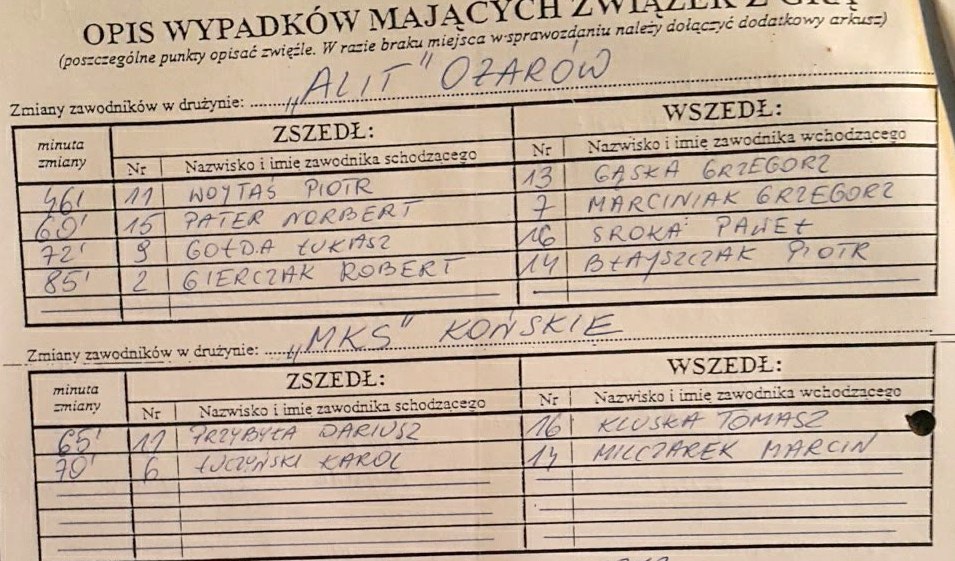 OPIS WYPADKÓW MAJĄCYCH ZWIĄZEK Z GRĄ
(poszczególne punkty opisać zwięźle. W razie braku miejsca w sprawozdaniu należy dołączyć dodatkowy arkusz)
Zmiany zawodników w drużynie: „ALIT" OŻARÓW
minuta zmiany ZSZEDŁ: WSZEDŁ:
Nr Nazwisko i imię zawodnika schodzącego Nr Nazwisko i imię zawodnika wchodzącego
46' 11 WOJTAŚ PIOTR 13 GĄSKA GRZEGORZ
60' 15 PATER NORBERT 7 MARCINIAK GRZEGORZ
72' 9 GOŁDA ŁUKASZ 16 SROKA PAWEŁ
85' 2 GIERCZAK ROBERT 14 BŁAJSZCZAK PIOTR
Zmiany zawodników w drużynie: „MKS" KOŃSKIE
minuta zmiany ZSZEDŁ: WSZEDŁ:
Nr Nazwisko i imię zawodnika schodzącego Nr Nazwisko i imię zawodnika wchodzącego
65' 11 PRZYBYŁA DARIUSZ 16 KLUSKA TOMASZ
70' 6 ŁUCZYŃSKI KAROL 14 MILCZAREK MARCIN